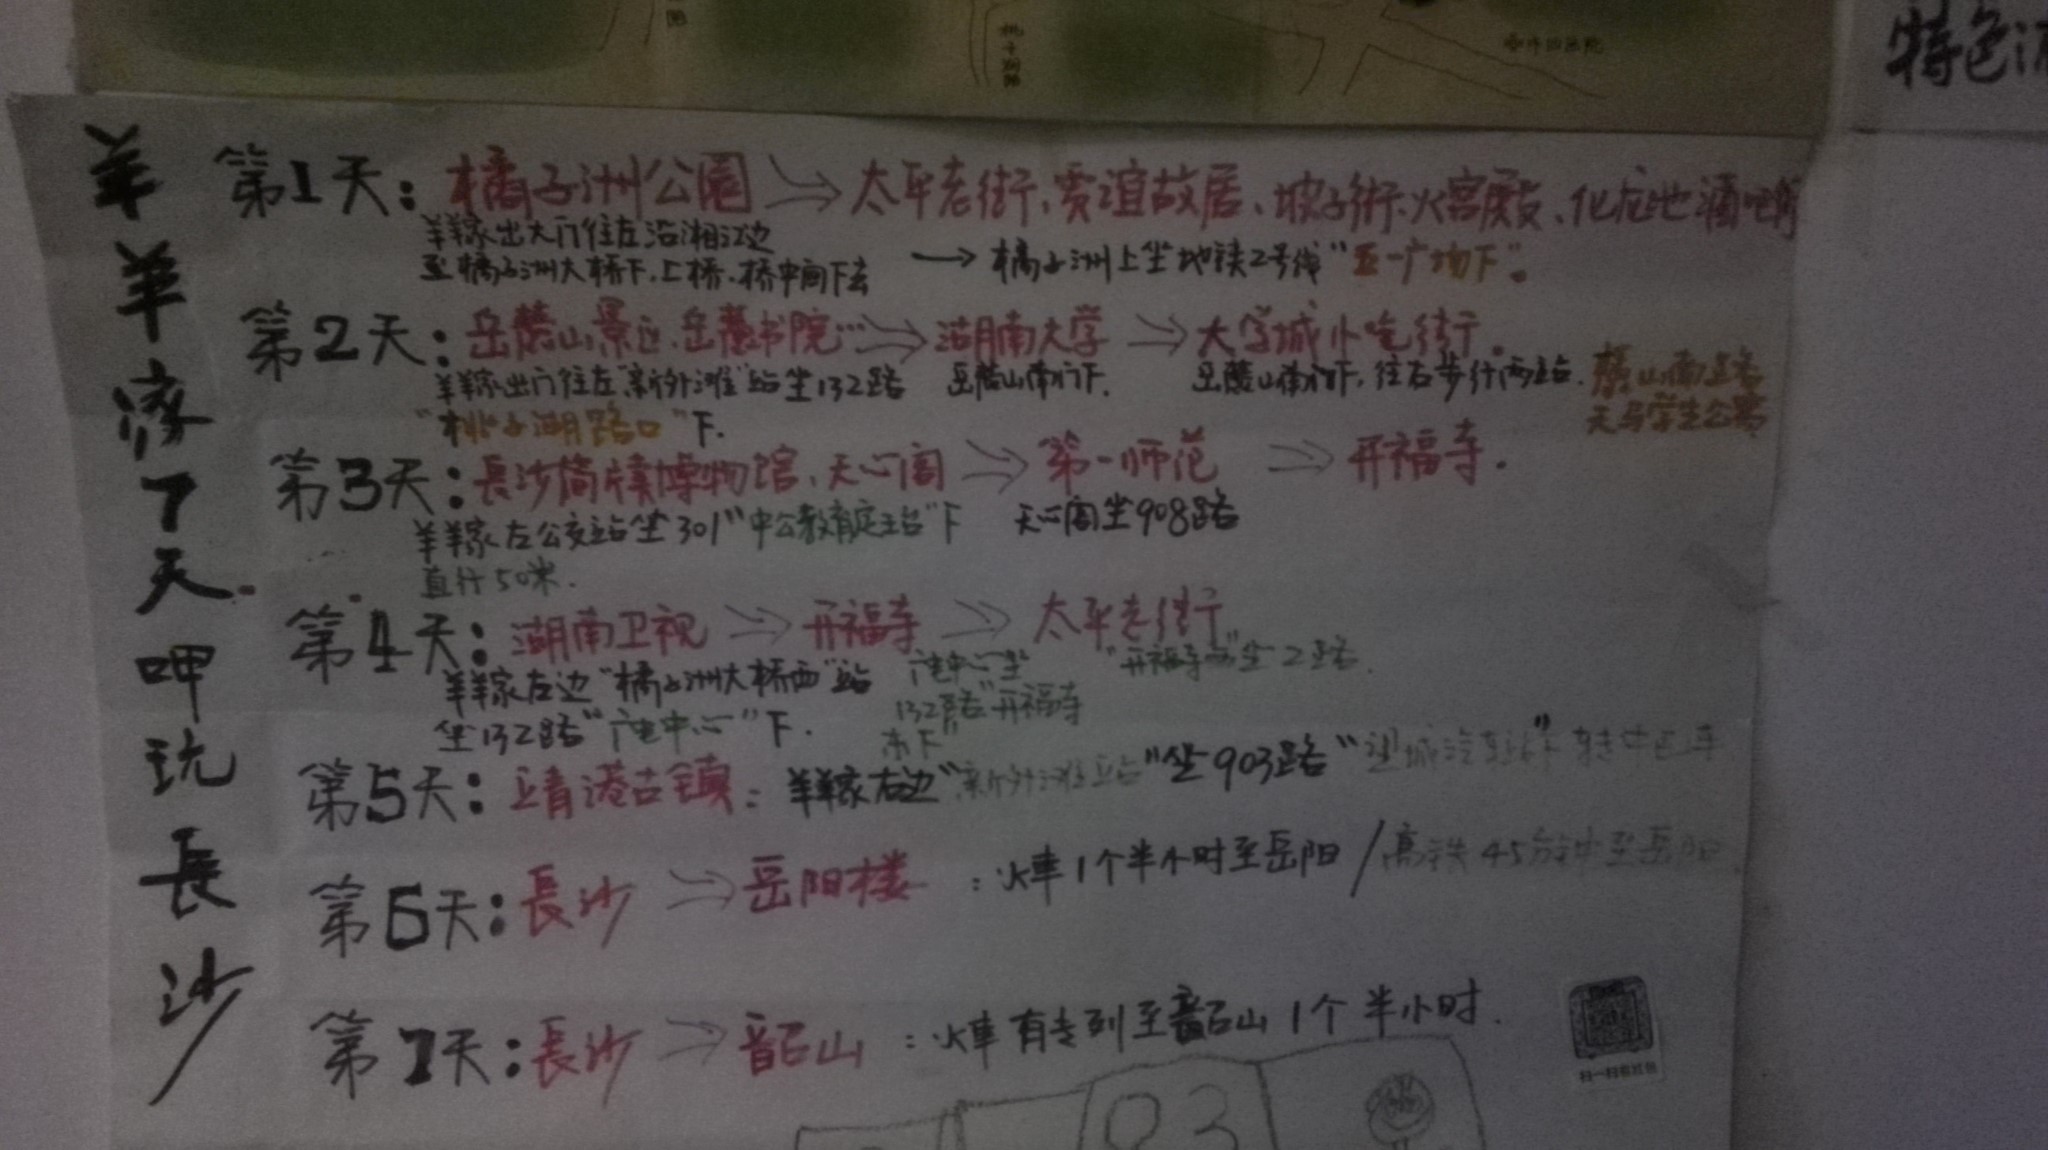 特色
羊羊家7天呷玩長沙
第1天：橘子洲公園→太平老街、贾谊故居、坡子街、火宫殿、化龙池酒吧街
羊羊家出大门往左沿湘江边
至橘子洲大桥下，上桥、桥中间下去 → 橘子洲上坐地铁2号线“五一广场下”。
第2天：岳麓山景区、岳麓书院…→湖南大学→大学城小吃街。
羊羊家出门往左“新外滩”站坐132路 岳麓山南门下. 岳麓山南门下，往右步行两站. 麓山南路
“桃子湖路口”下. 天马学生公寓
第3天：長沙简牍博物馆、天心阁→第一师范→开福寺.
羊羊家左公交站坐301“中公教育定王台”下 天心阁坐908路
直行50米.
第4天：湖南卫视→开福寺→太平老街
羊羊家左边“橘子洲大桥西”站 广电中心坐 “开福寺站”坐2路.
坐132路“广电中心”下. 132路“开福寺
下”
第5天：靖港古镇：羊羊家右边“新外滩站”坐903路“望城汽车站”下转中巴车
第6天：長沙→岳阳楼：火車1个半小时至岳阳/高铁45分钟至岳阳
第7天：長沙→韶山：火車有专列至韶山1个半小时.